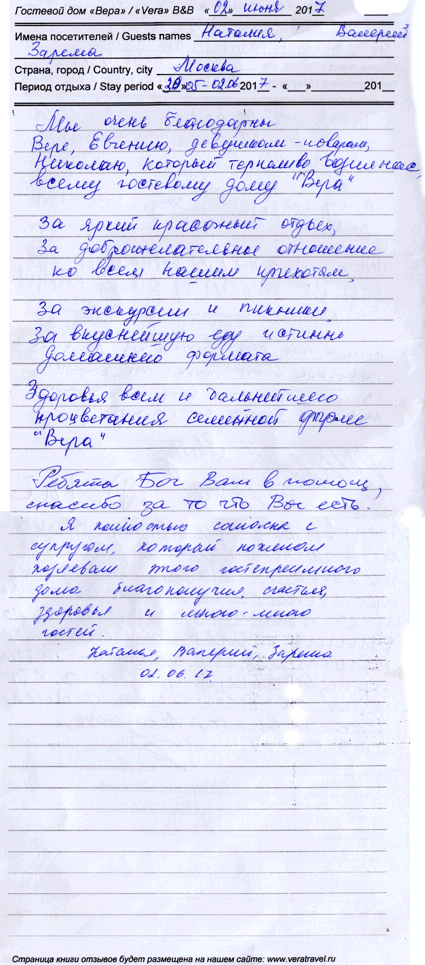 Гостевой дом «Вера» / «Vera» B&B « 02 » июня 2017
Имена посетителей / Guests names Наталия, Валерий
Зарема
Страна, город / Country, city Москва
Период отдыха / Stay period « 30 » 05 - 02.06 2017 - « » 201
Мы очень благодарны
Вере, Евгению, девушкам-поварам,
Николаю, который терпеливо возил нас,
всему гостевому дому "Вера"
За яркий красочный отдых,
За доброжелательное отношение
ко всем нашим прихотям,
За экскурсии и пикники,
За вкуснейшую еду истинно
домашнего формата
Здоровья всем и дальнейшего
процветания семейной фирме
"Вера"
Ребята Бог Вам в помощь,
спасибо за то что Вы есть.
Я полностью согласна с
супругом, который пожелал
хозяевам этого гостеприимного
дома благополучия, счастья,
здоровья и много-много
гостей.
Наталья, Валерий, Зарема
02.06.17
Страница книги отзывов будет размещена на нашем сайте: www.veratravel.ru